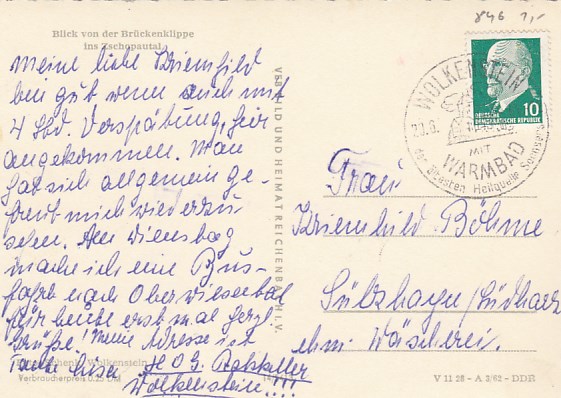 846 1,-
Blick von der Brückenklippe
ins Zschopautal
Meine liebe Kriemhild
bin gut wenn auch mit
4 Std. Verspätung, hier
angekommen. Man
hat sich allgemein ge-
freut mich wiederzu-
sehen. Am Dienstag
mache ich eine Bus-
fahrt nach Oberwiesenthal
Für heute erst mal herzl.
Grüße! Meine Adresse ist
Tante Luise H.O.G. Ratskeller
Wolkenstein!!!
Wolkenstein
Verbraucherpreis 0.25 DM
VEB BILD UND HEIMAT REICHENBACH I. V.
WOLKENSTEIN
MIT
WARMBAD
der ältesten Heilquelle Sachsens
DEUTSCHE
DEMOKRATISCHE REPUBLIK
10
Frau
Kriemhild Böhme
Sülzhayn/Südharz
ehm. Wäscherei.
V 11 28 - A 3/62 - DDR